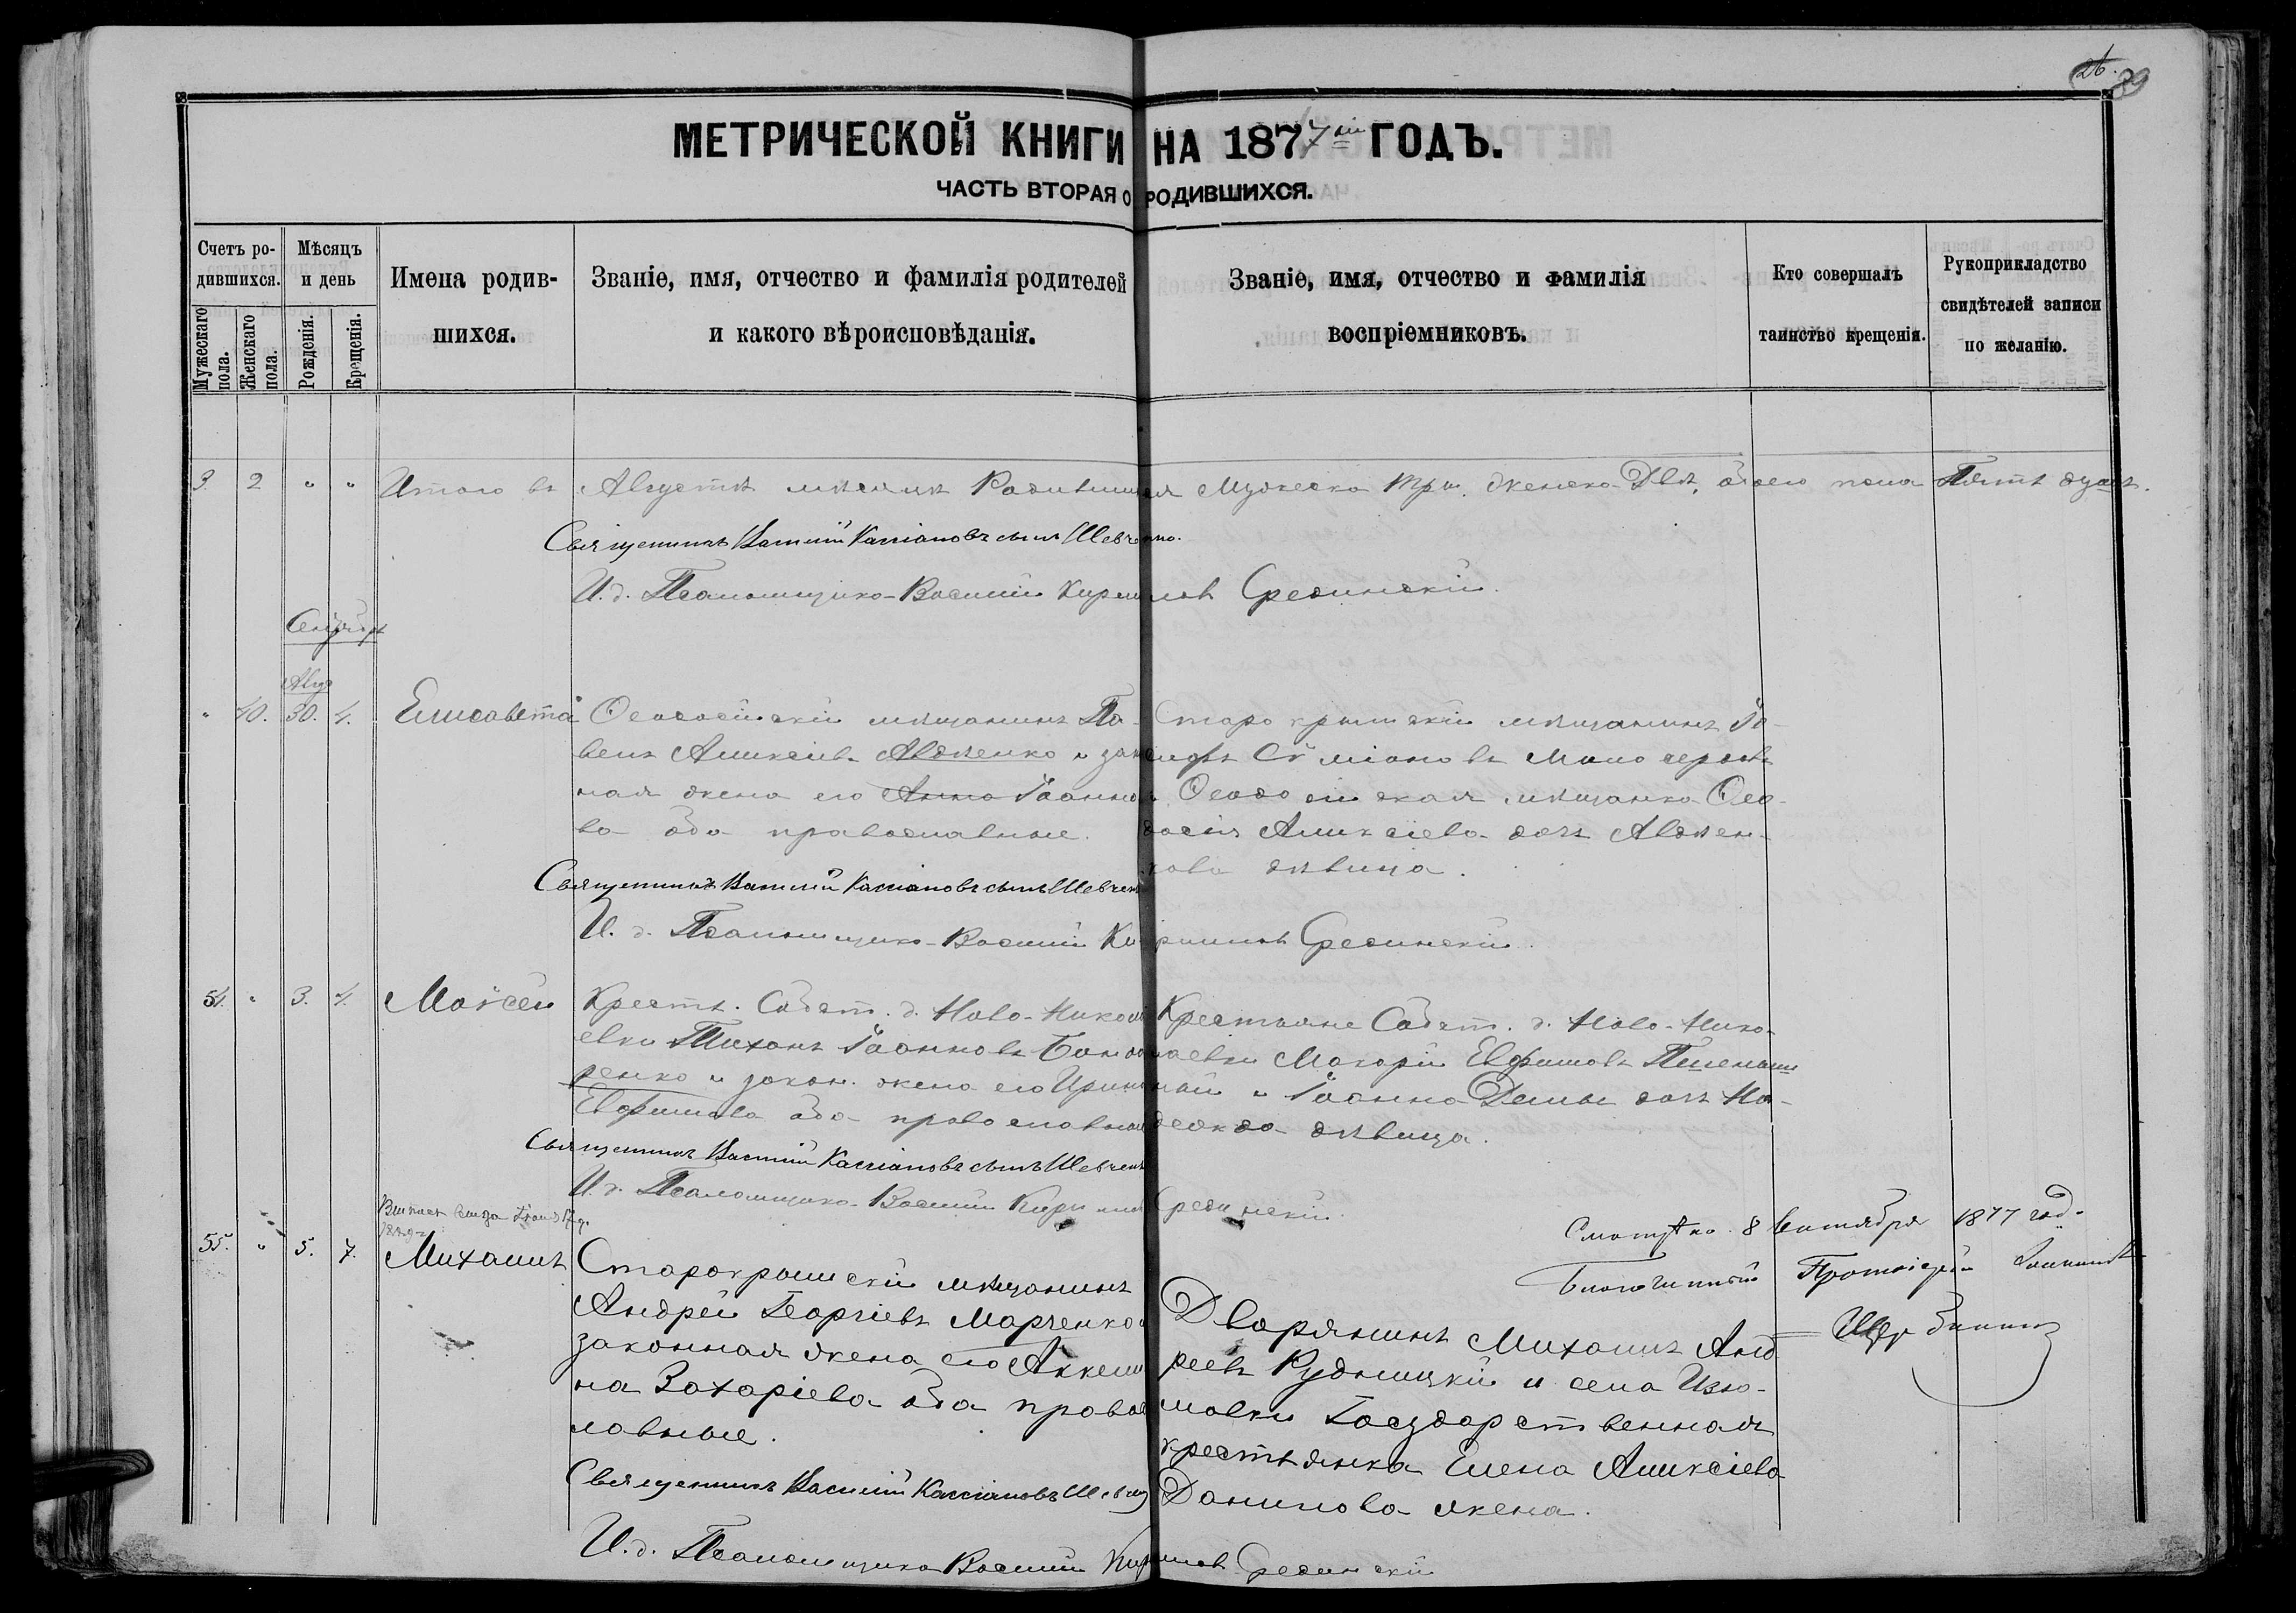 26.
МЕТРИЧЕСКОЙ КНИГИ НА 1877й ГОДЪ.
ЧАСТЬ ВТОРАЯ О РОДИВШИХСЯ.
Счетъ ро-
дившихся.
Мужескаго пола.
Женскаго пола.
Мѣсяцъ
и день
Рожденія.
Крещенія.
Имена родив-
шихся.
Званіе, имя, отчество и фамилія родителей
и какого вѣроисповѣданія.
Званіе, имя, отчество и фамилія
воспріемниковъ.
Кто совершалъ
таинство крещенія.
Рукоприкладство
свидѣтелей записи
по желанію.
3. 2 " " Итого въ Августѣ мѣсяцѣ Родившихся Мужеска три, женска Двѣ, обоего пола Пять душъ.
Священникъ Василій Кассіановъ сынъ Шевченко.
И. д. Псаломщика Василій Кириловъ Срединскій.
Сентябрь
Авгу
" 10. 30. 1. Елисавета
Ѳеодосійскій мѣщанинъ Па-
велъ Алексѣевъ Авдѣенко и закон
ная жена его Анна Іоанно
ва оба православные.
Старокрымскій мѣщанинъ Іо-
сифъ
Ѳеодосійская мѣщанка Ѳео-
досія Алексѣева дочь Авдѣен-
кова дѣвица.
Священникъ Василій Кассіановъ сынъ Шевчен
И. д. Псаломщика Василій Кириловъ Срединскій.
51. " 3. 4. Моѵсей
Крестн. Собст. д. Ново-Никола
евки Тихонъ Іоанновъ Бондо
ренко и закон. жена его Ирина
Евфимова оба православные
Крестьяне Собст. д. Ново-Нико-
лаевки Макарій Евфимовъ
и Іоанна Демы дочь На-
дежда дѣвица.
Священникъ Василій Кассіановъ сынъ Шевчен
И. д. Псаломщика Василій Кирилов Срединскій.
55. " 5. 7. Михаилъ
Старокрымскій мѣщанинъ
Андрей Георгіевъ Марченко и
законная жена его Аккели
на Захаріева оба правос
лавные.
Смотрѣно 8 Октября 1877 год.
Благочинный Протоіерей
Дворянинъ Михаилъ Анд
реевъ Рудницкій и села Изю-
мовки Государственная
крестьянка Елена Алексѣева
Данилова жена.
Священникъ Василій Кассіановъ Шевчен
И. д. Псаломщика Василій Кириловъ Срединскій